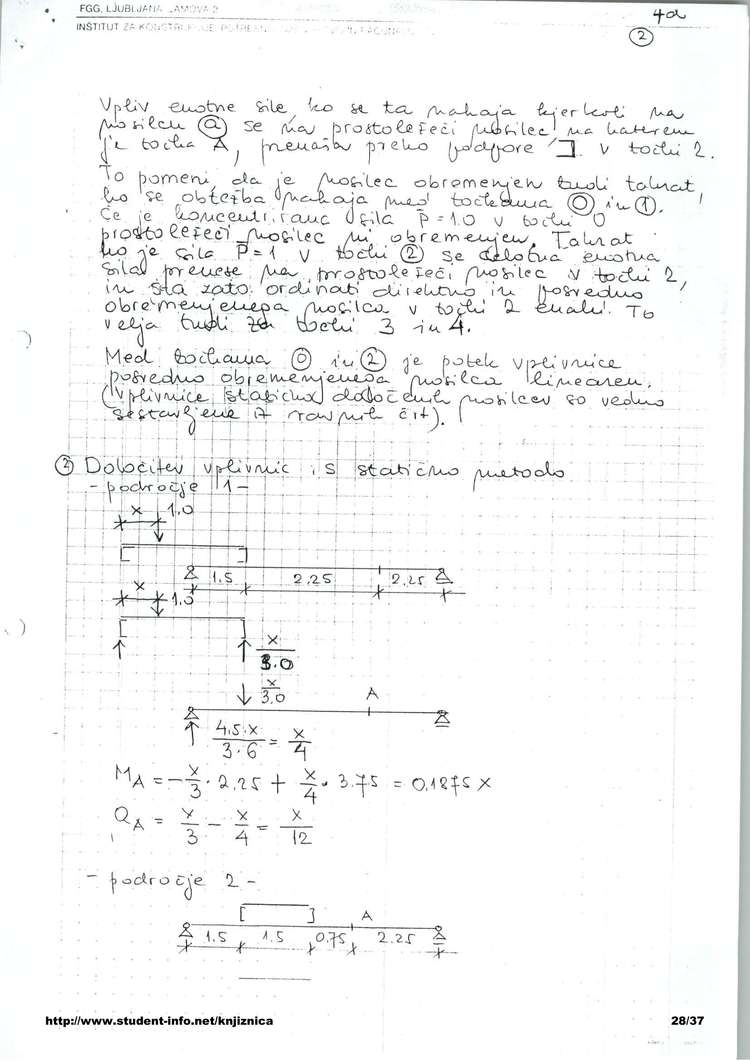 FGG, LJUBLJANA, JAMOVA 2
INŠTITUT ZA KONSTRUKCIJE, POTRESNO
4a
2
Vpliv enotne sile, ko se ta nahaja kjerkoli na
nosilcu (a) se na prostoležeči nosilec na katerem
je točka A, prenaša preko podpore ] v točki 2.
To pomeni, da je nosilec obremenjen tudi takrat,
ko se obtežba nahaja med točkama (0) in (1).
Če je koncentrirana sila P=1.0 v točki 0
prostoležeči nosilec ni obremenjen. Takrat
ko je sila P=1 v točki (2) se celotna enotna
sila prenese na prostoležeči nosilec v točki 2,
in sta zato ordinati direktno in posredno
obremenjenega nosilca v točki 2 enaki. To
velja tudi za točki 3 in 4.
Med točkama (0) in (2) je potek vplivnice
posredno obremenjenega nosilca linearen.
(Vplivnice statično določenih nosilcev so vedno
sestavljene iz ravnih črt).
(2) Določitev vplivnic s statično metodo
- področje 1 -
x 1.0
1.5 2.25 2.25
x 1.0
x/3.0
x/3.0
A
4.5·x/3·6 = x/4
MA = -x/3 · 2.25 + x/4 · 3.75 = 0.1875 x
QA = x/3 - x/4 = x/12
- področje 2 -
[ ] A
1.5 1.5 0.75 2.25
http://www.student-info.net/knjiznica
28/37